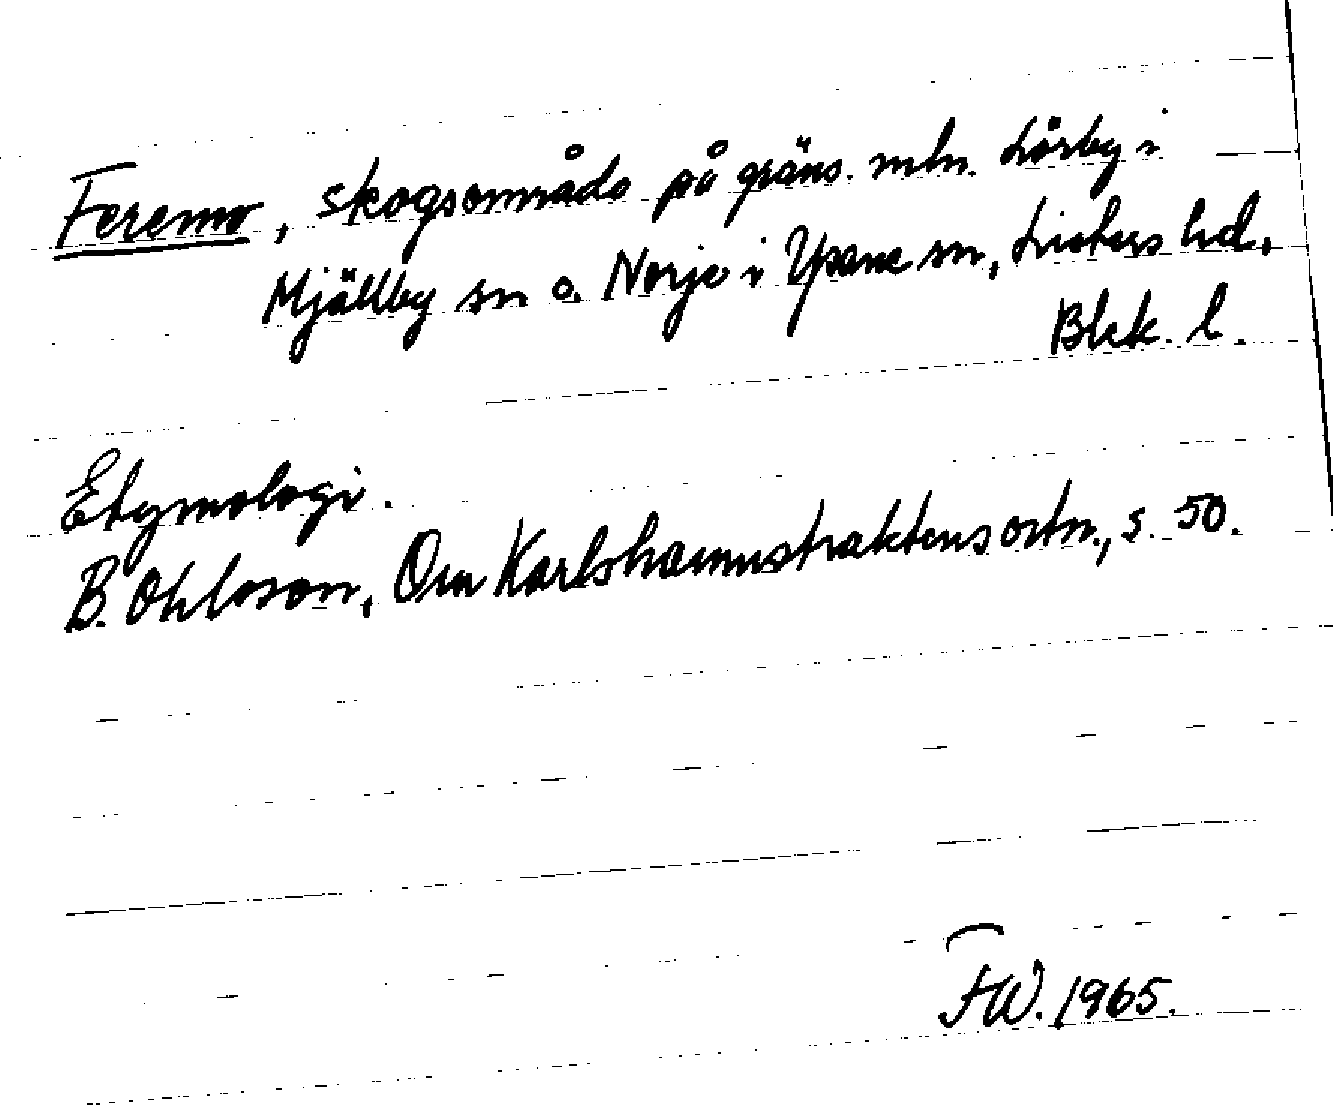 Feremo, skogsområde på gräns. mln. Lörby i
Mjällby sn o. Norje i Ysane sn, Listers hd,
Blek. l.
Etymologi.
B. Ohlsson, Om Karlshamnstraktens ortn., s. 50.
FW. 1965.